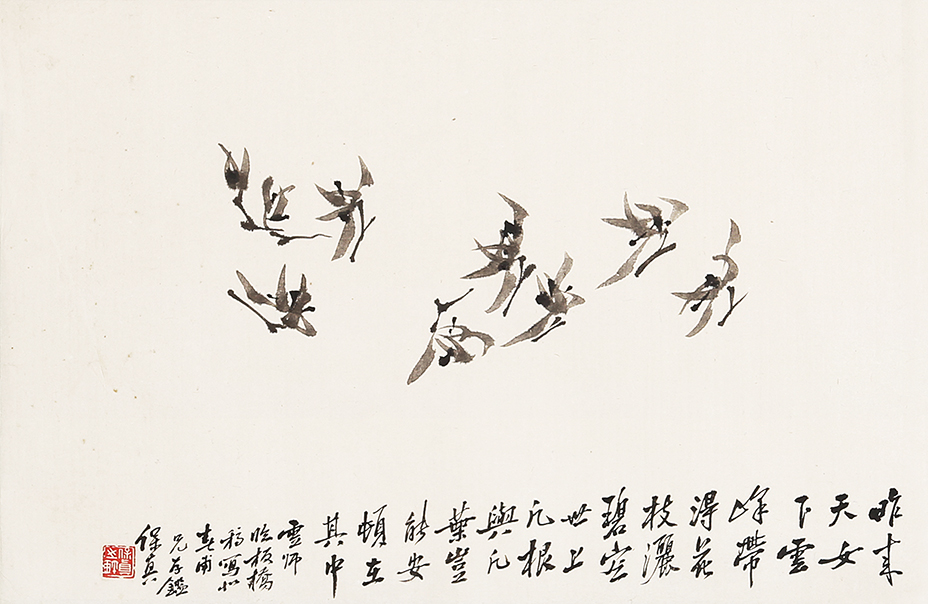 昨来
天女
下雲
峰帶
得花
枝灑
碧空
世上
凡根
與凡
葉豈
能安
頓在
其中
雲師
臨板橋
稿寫似
甫
兄存鑑
保真